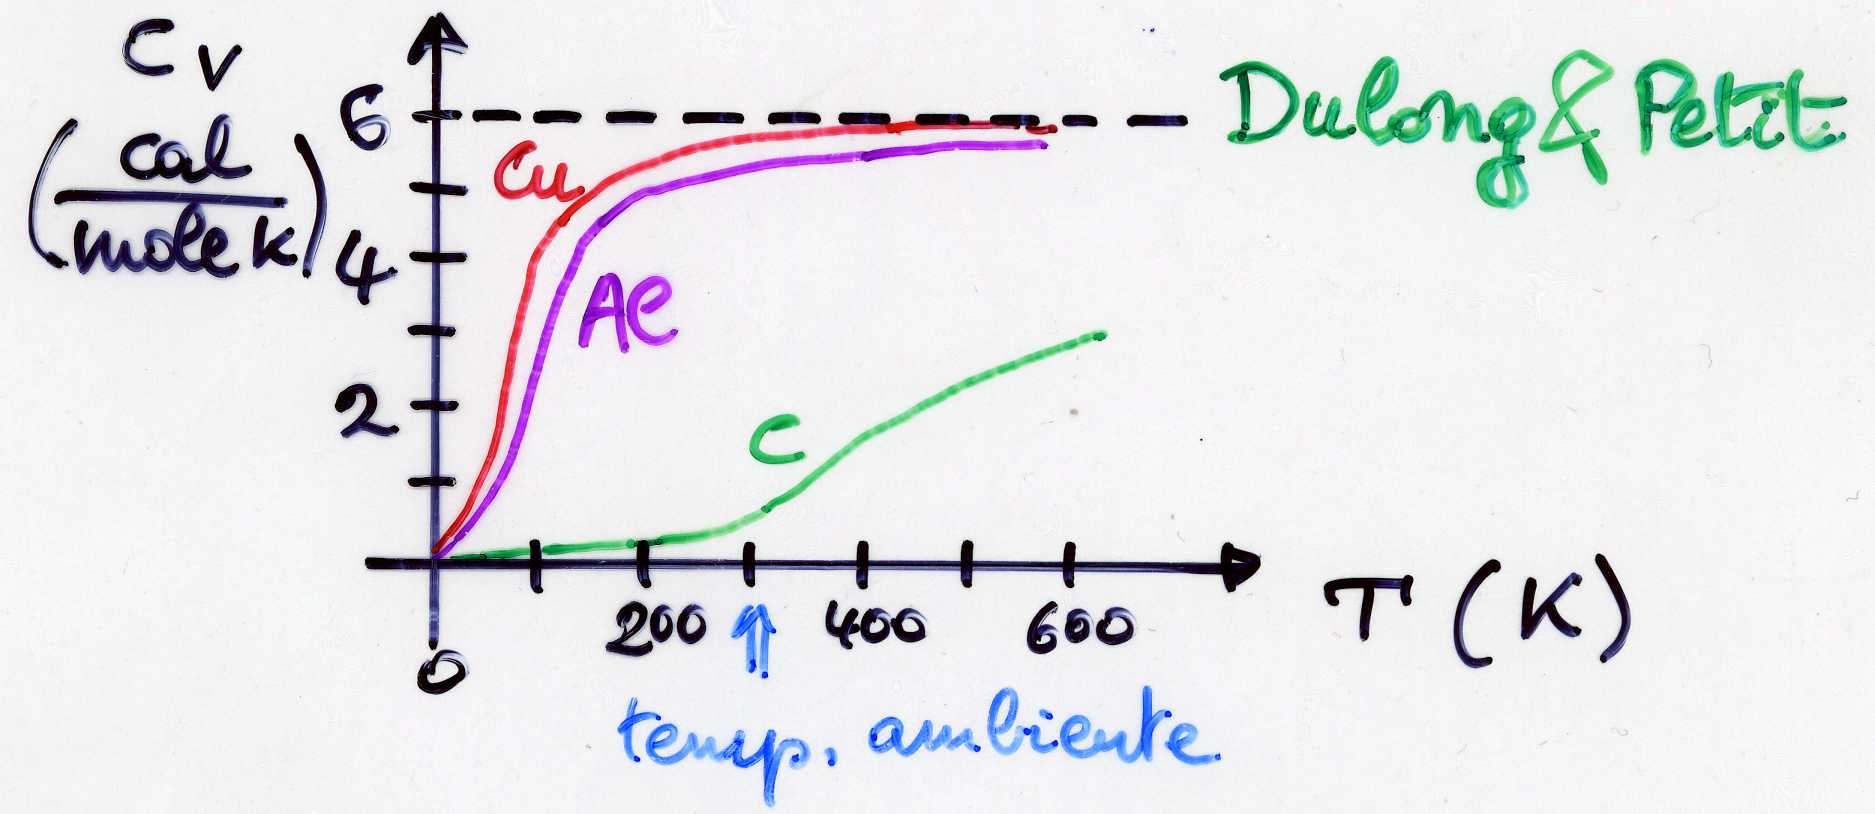 Cv
(cal/mole K)
6
Dulong & Petit
Cu
4
Al
2
C
200
400
600
T (K)
0
temp. ambiente